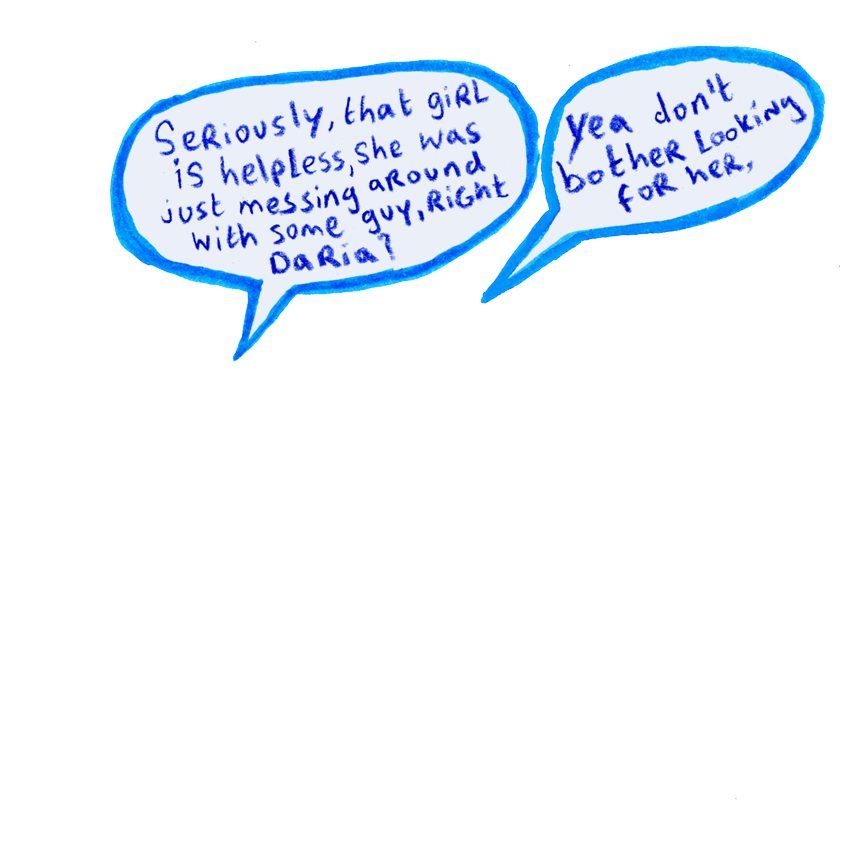 Seriously, that girl
is helpless, she was
just messing around
with some guy, right
Daria?
Yea don't
bother looking
for her,